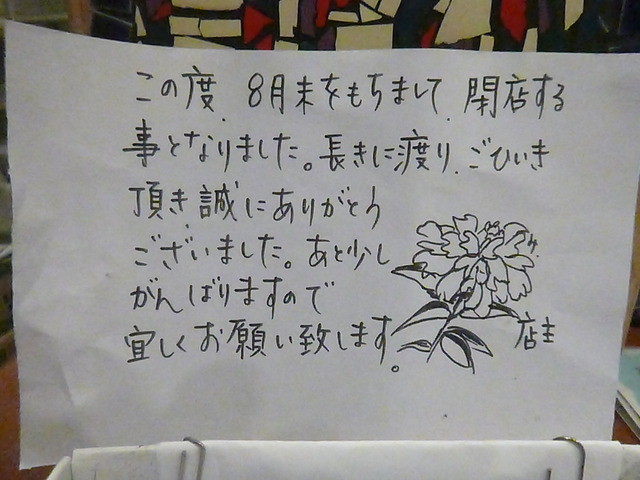 この度 8月末をもちまして、閉店する
事となりました。長きに渡り、ごひいき
頂き、誠にありがとう
ございました。あと少し
がんばりますので
宜しくお願い致します。
店主